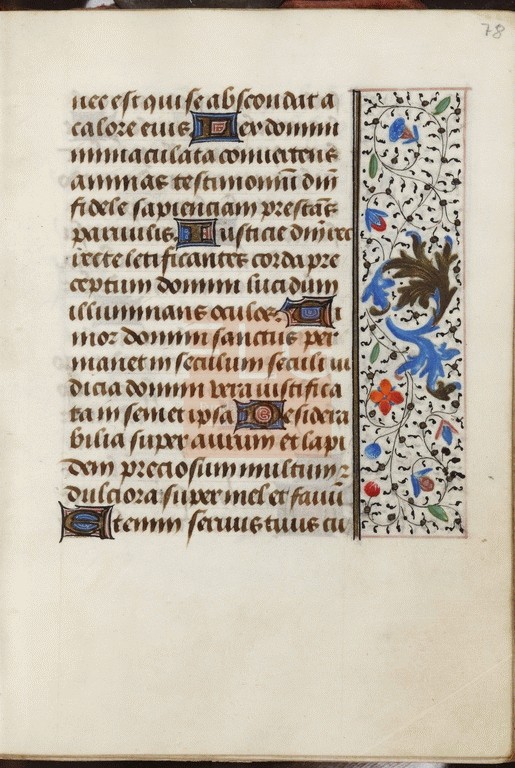 78
nec est qui se abscondat a
calore eius Lex domini
inmaculata conuertens
animas testimoniū dñi
fidele sapienciam prestās
paruulis Iusticie dñi rec
recte letificantes corda pre
ceptum domini lucidum
illuminans oculos. Ti
mor domini sanctus per
manet in seculum seculi iu
dicia domini vera iustifica
ta in semet ipsa Desidera
bilia super aurum et lapi
dem preciosum multum ꝛ
dulciora super mel et fauū
Etenim seruus tuus cu